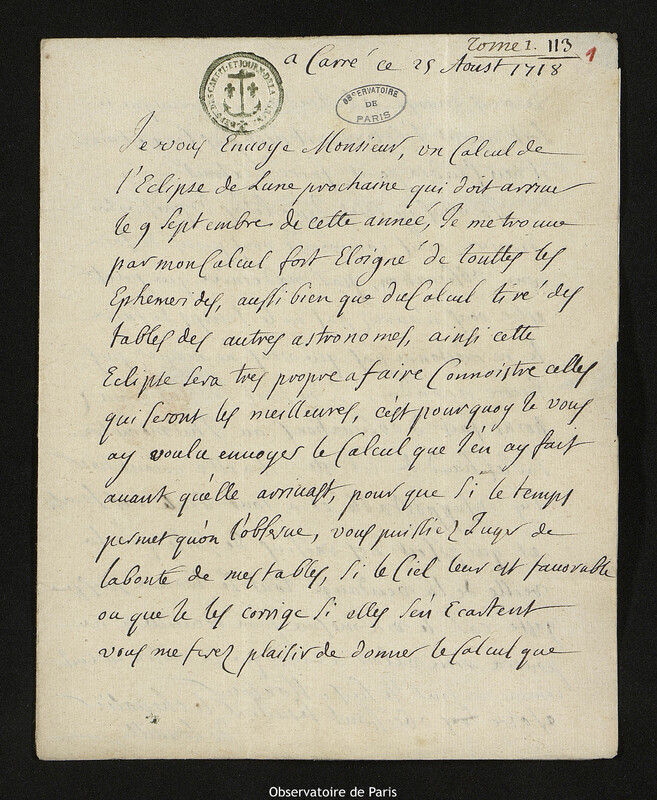 Tome 1. 113
1
a Carré ce 25 Aoust 1718
OBSERVATOIRE
DE
PARIS
Je vous Envoye Monsieur, un Calcul de
l'Eclipse de Lune prochaine qui doit arriuer
le 9 Septembre de cette anneé, Je me trouue
par mon Calcul fort Eloigné de touttes les
Ephemerides, aussi bien que du Calcul tiré des
tables des autres astronomes, ainsi cette
Eclipse sera tres propre a faire Connoistre celles
qui seront les meilleures, c'est pourquoy Je vous
ay voulu envoyer le Calcul que J'en ay fait
auant qu'elle arriuast, pour que si le temps
permet qu'on l'obserue, vous puissiez Juger de
la bonté de mes tables, si le Ciel leur est fauorable
ou que Je les corrige si elles s'en Ecartent
vous me ferez plaisir de donner le Calcul que
Observatoire de Paris